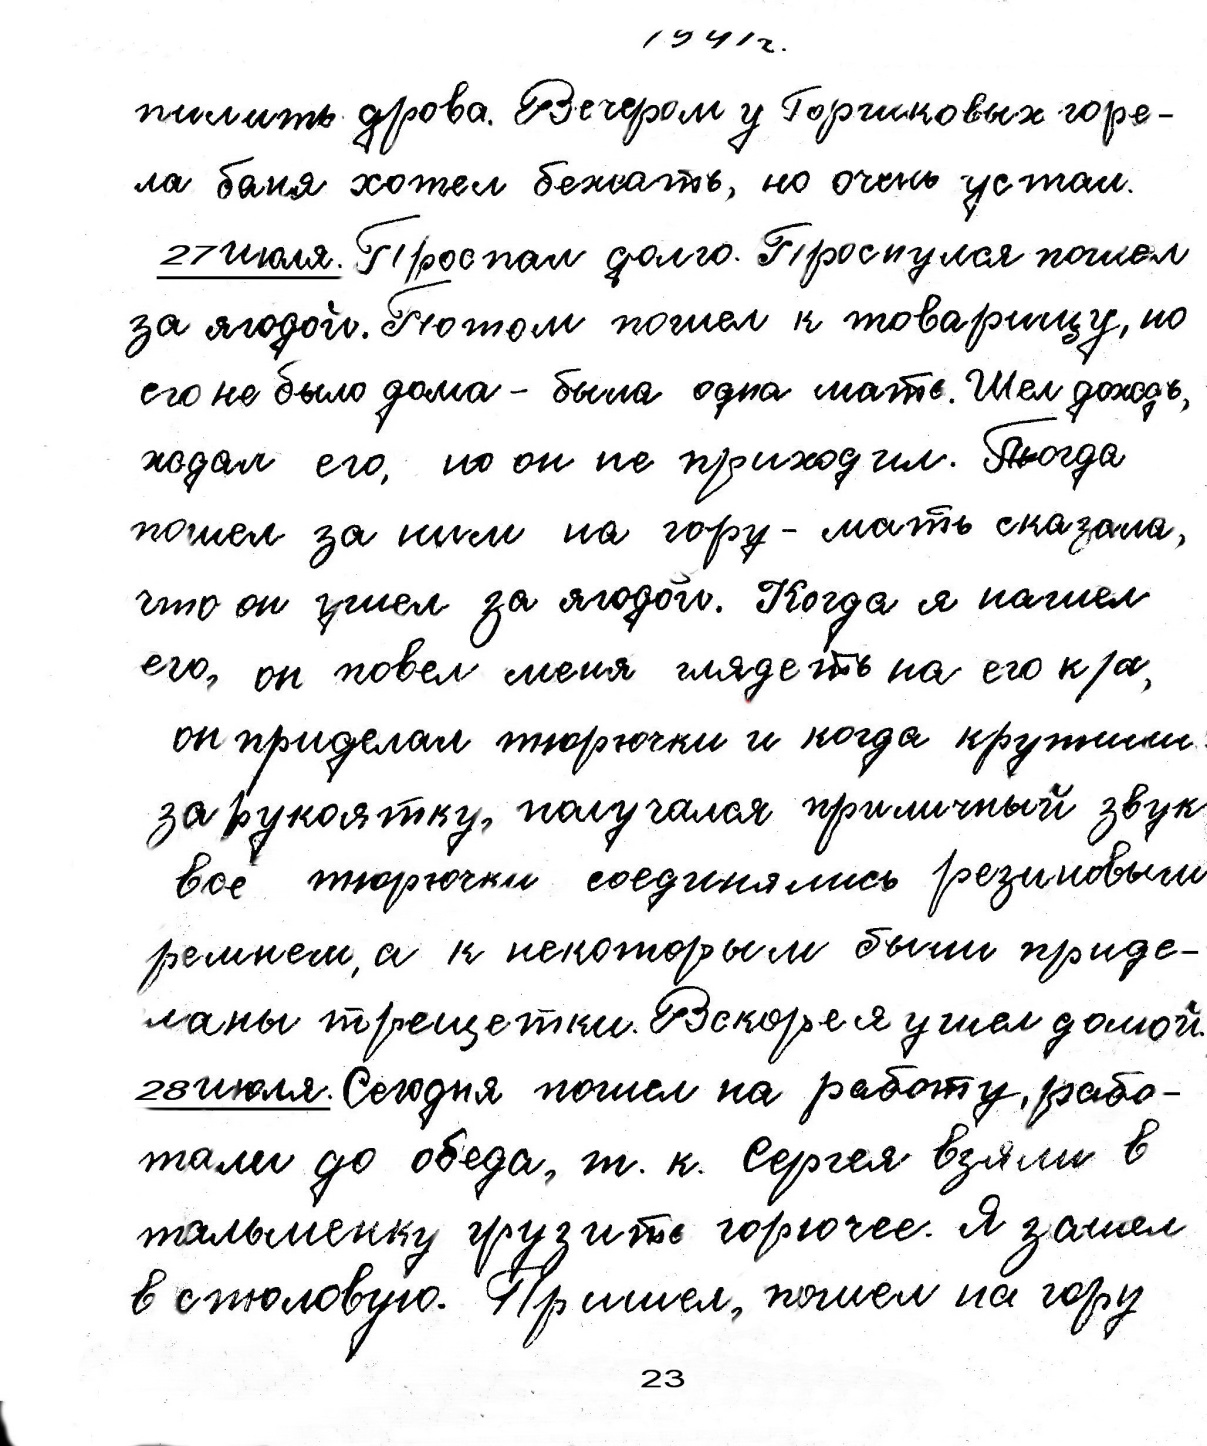 1941г.
пилить дрова. Вечером у Горчиковых горе-
ла баня хотел бежать, но очень устал.
27 июля. Проспал долго. Проснулся пошел
за ягодой. Потом пошел к товарищу, но
его не было дома - была одна мать. Шел дождь,
ждал его, но он не приходил. Тогда
пошел за ним на гору - мать сказала,
что он ушел за ягодой. Когда я нашел
его, он повел меня глядеть на его
он приделал тюрючки и когда крутили
за рукоятку, получался приличный звук
все тюрючки соединялись резиновым
ремнем, а к некоторым были приде-
ланы трещетки. Вскоре я ушел домой.
28 июля. Сегодня пошел на работу, рабо-
тали до обеда, т. к. Сергея взяли в
тальменку грузить горючее. Я зашел
в столовую. Пришел, пошел на гору
23